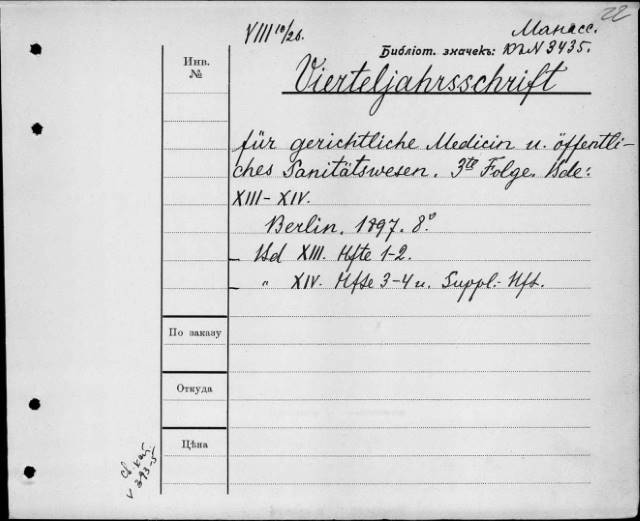 22
VIII 10/26.
Манасс.
Библіот. значекъ: N 3435.
Инв.
№
Vierteljahrsschrift
für gerichtliche Medicin u. öffentli-
ches Sanitätswesen. 3te Folge. Bde:
XIII-XIV.
Berlin. 1897. 8°
— Bd XIII. Hfte 1-2.
— " XIV. Hfte 3-4 u. Suppl.-Hft.
По заказу
Откуда
Цѣна
V 393-5